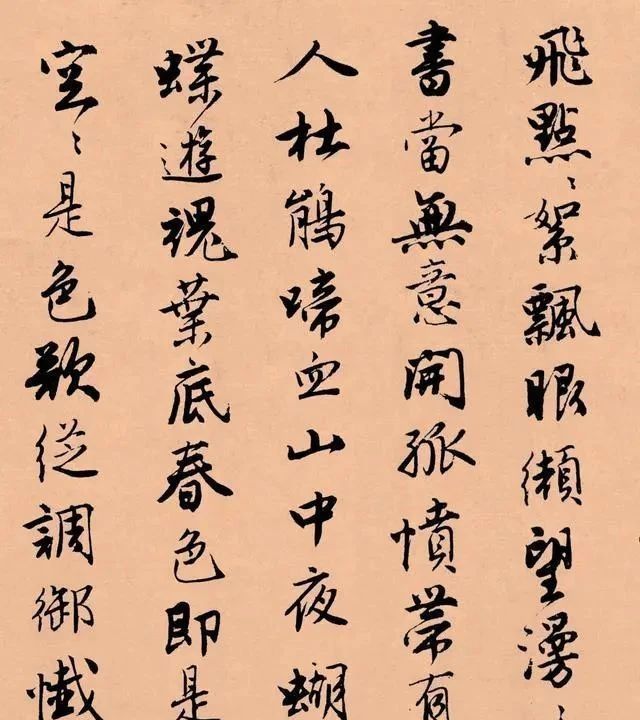 飛點〻絮飄眼嬾望漫〻
書當無意開孤憤帶有
人杜鵑啼血山中夜蝴
蝶遊魂葉底春色即是
空〻是色欲從調御懺